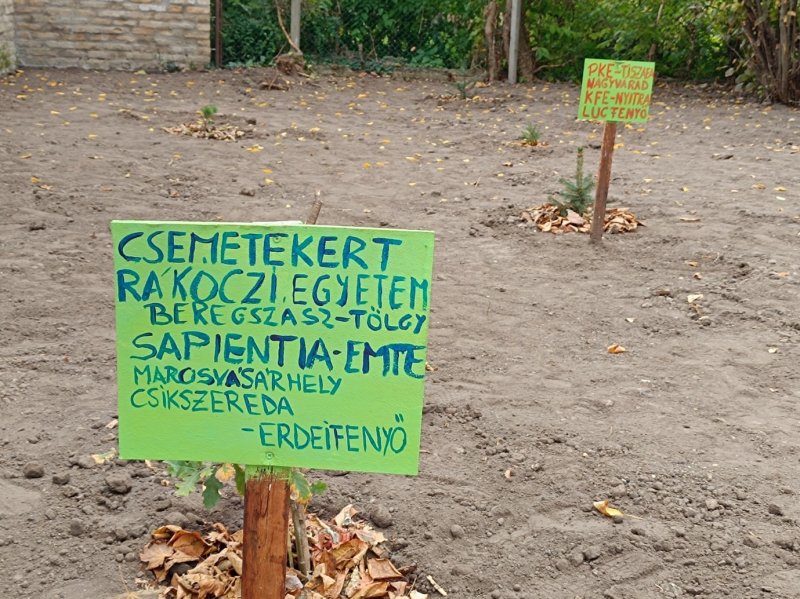 CSEMETEKERT
RÁKÓCZI EGYETEM
BEREGSZÁSZ-TÖLGY
SAPIENTIA-EMTE
MAROSVÁSÁRHELY
CSÍKSZEREDA
-ERDEIFENYŐ
PKE-TISZABA
NAGYVÁRAD
KFE-NYITRA
LUCFENYŐ